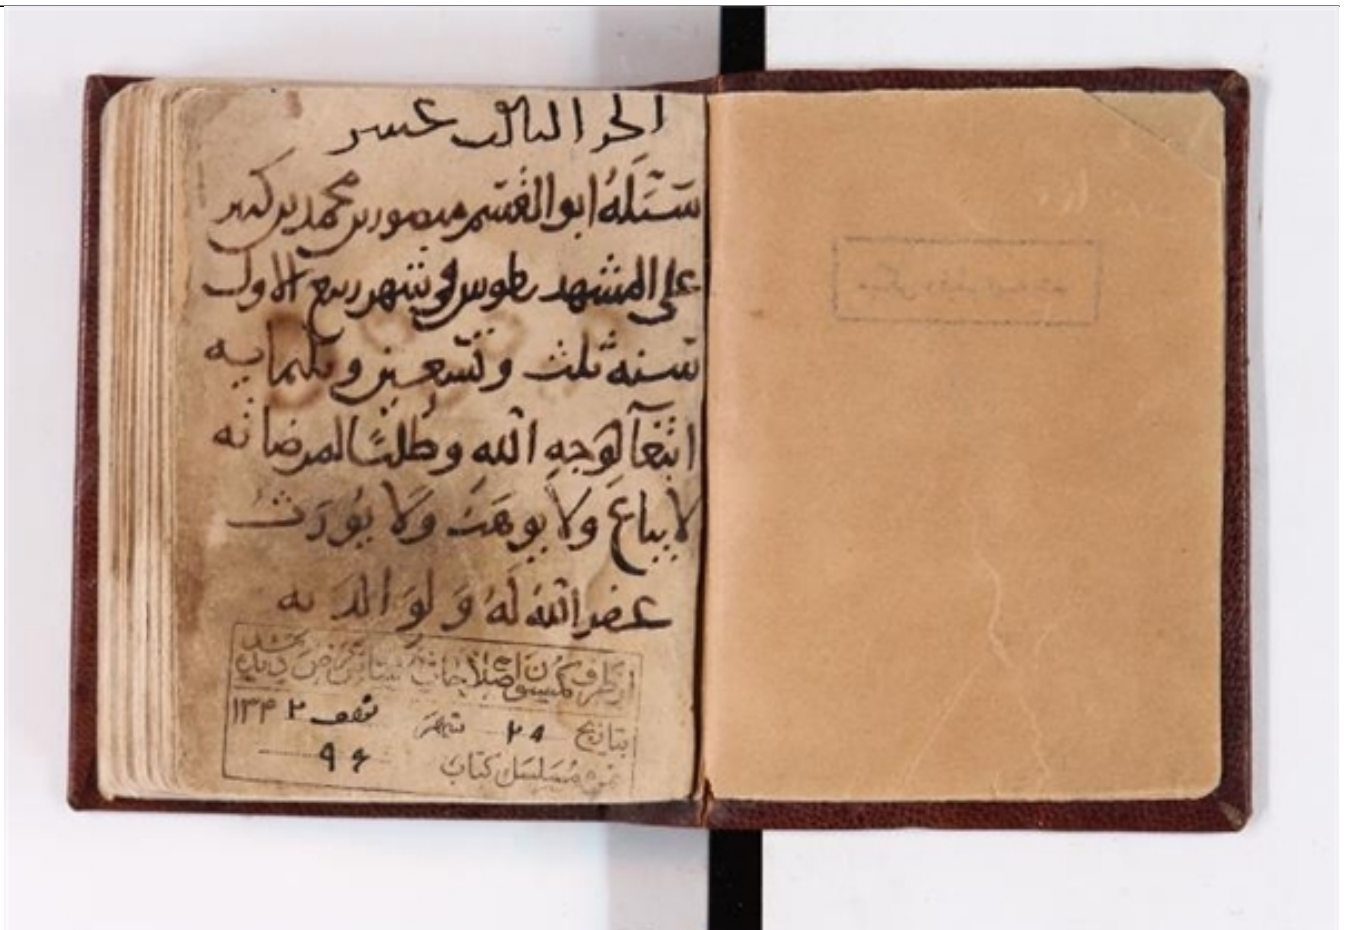 الجز الثالث عشر
سَبَّلَهُ ابو القسم منصور بن محمد بن كثير
على المشهد بطوس في شهر ربيع الاول
سنه ثلث وتسعين وثلثمايه
ابتغآ لوجهِ الله وطلبًا لمرضاته
لا يباعُ ولا يوهَبُ ولا يُورَثُ
غفر الله لَهُ وَلوَالدَيه
از طرف کمسیون اصلاحات
بتاریخ ۲۹ شهر ثور ۱۳۴۲
نمره مسلسل کتاب ۹۶